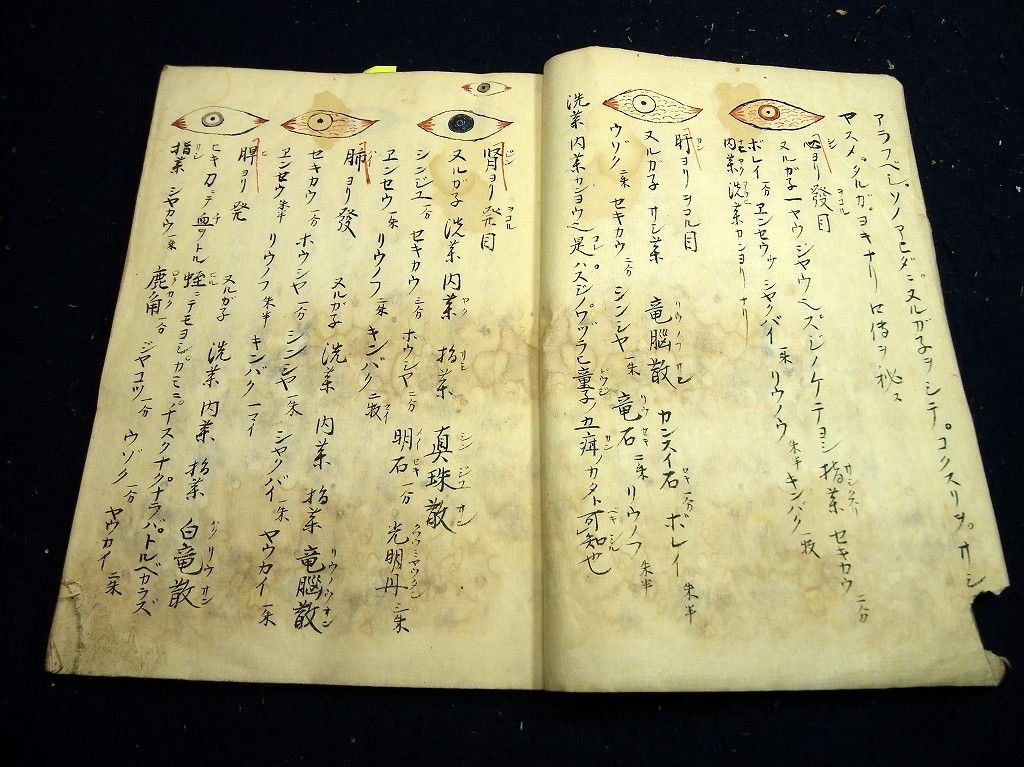 アラフベシ。ソノアヒダニヌルガ子ヲシテ。コクスリヲ。サシ
ヤスメタルガヨキナリ 口傳ヲ秘ス
心ヨリ發目
ヌルガ子一ヤウジヤウベスジノケテヨシ 指薬 セキカウ 二分
ボレイ 一分 ヱンセウ シヤクバイ 一朱 リウノウ 朱半 キンバク 一牧
内薬 洗薬カンヨリナリ
肝ヨリヲコル目
ヌルガ子 サシ薬 竜脳散 カンスイ石 一分 ボレイ 朱半
ウゾク 二朱 セキカウ 二分 シンシヤ 一朱 竜石 二朱 リウノフ 朱半
洗薬内薬カンヨウ 是ハスジノワヅラヒ童子ノ五疳ノカタ 可知也
腎ヨリ発目
ヌルガ子 洗薬 内薬 指薬 真珠散
シンジユ 一分 セキカウ 二分 ホウシヤ 二分 明石 一分 光明丹 三朱
ヱンセウ 一朱 リウノフ 二朱 キンバク 二牧
肺ヨリ發 ヌルガ子 洗薬 内薬 指薬 竜脳散
セキカウ 一分 ホウシヤ 一分 シンシヤ 一朱 シヤクバイ 一朱 ヤウカイ 一朱
ヱンセウ 朱半 リウノフ 朱半 キンバク 一マイ
脾ヨリ発 ヌルガ子 洗薬 内薬 指薬 白竜散
ヒキ刀ニテ血ヲトル 蛭ニテモヨシ。カミニ。チスクナクナラバ。トルベカラズ
指薬 シヤカウ 一朱 鹿角 一分 ジヤコツ 一分 ウゾク 一分 ヤウカイ 二朱